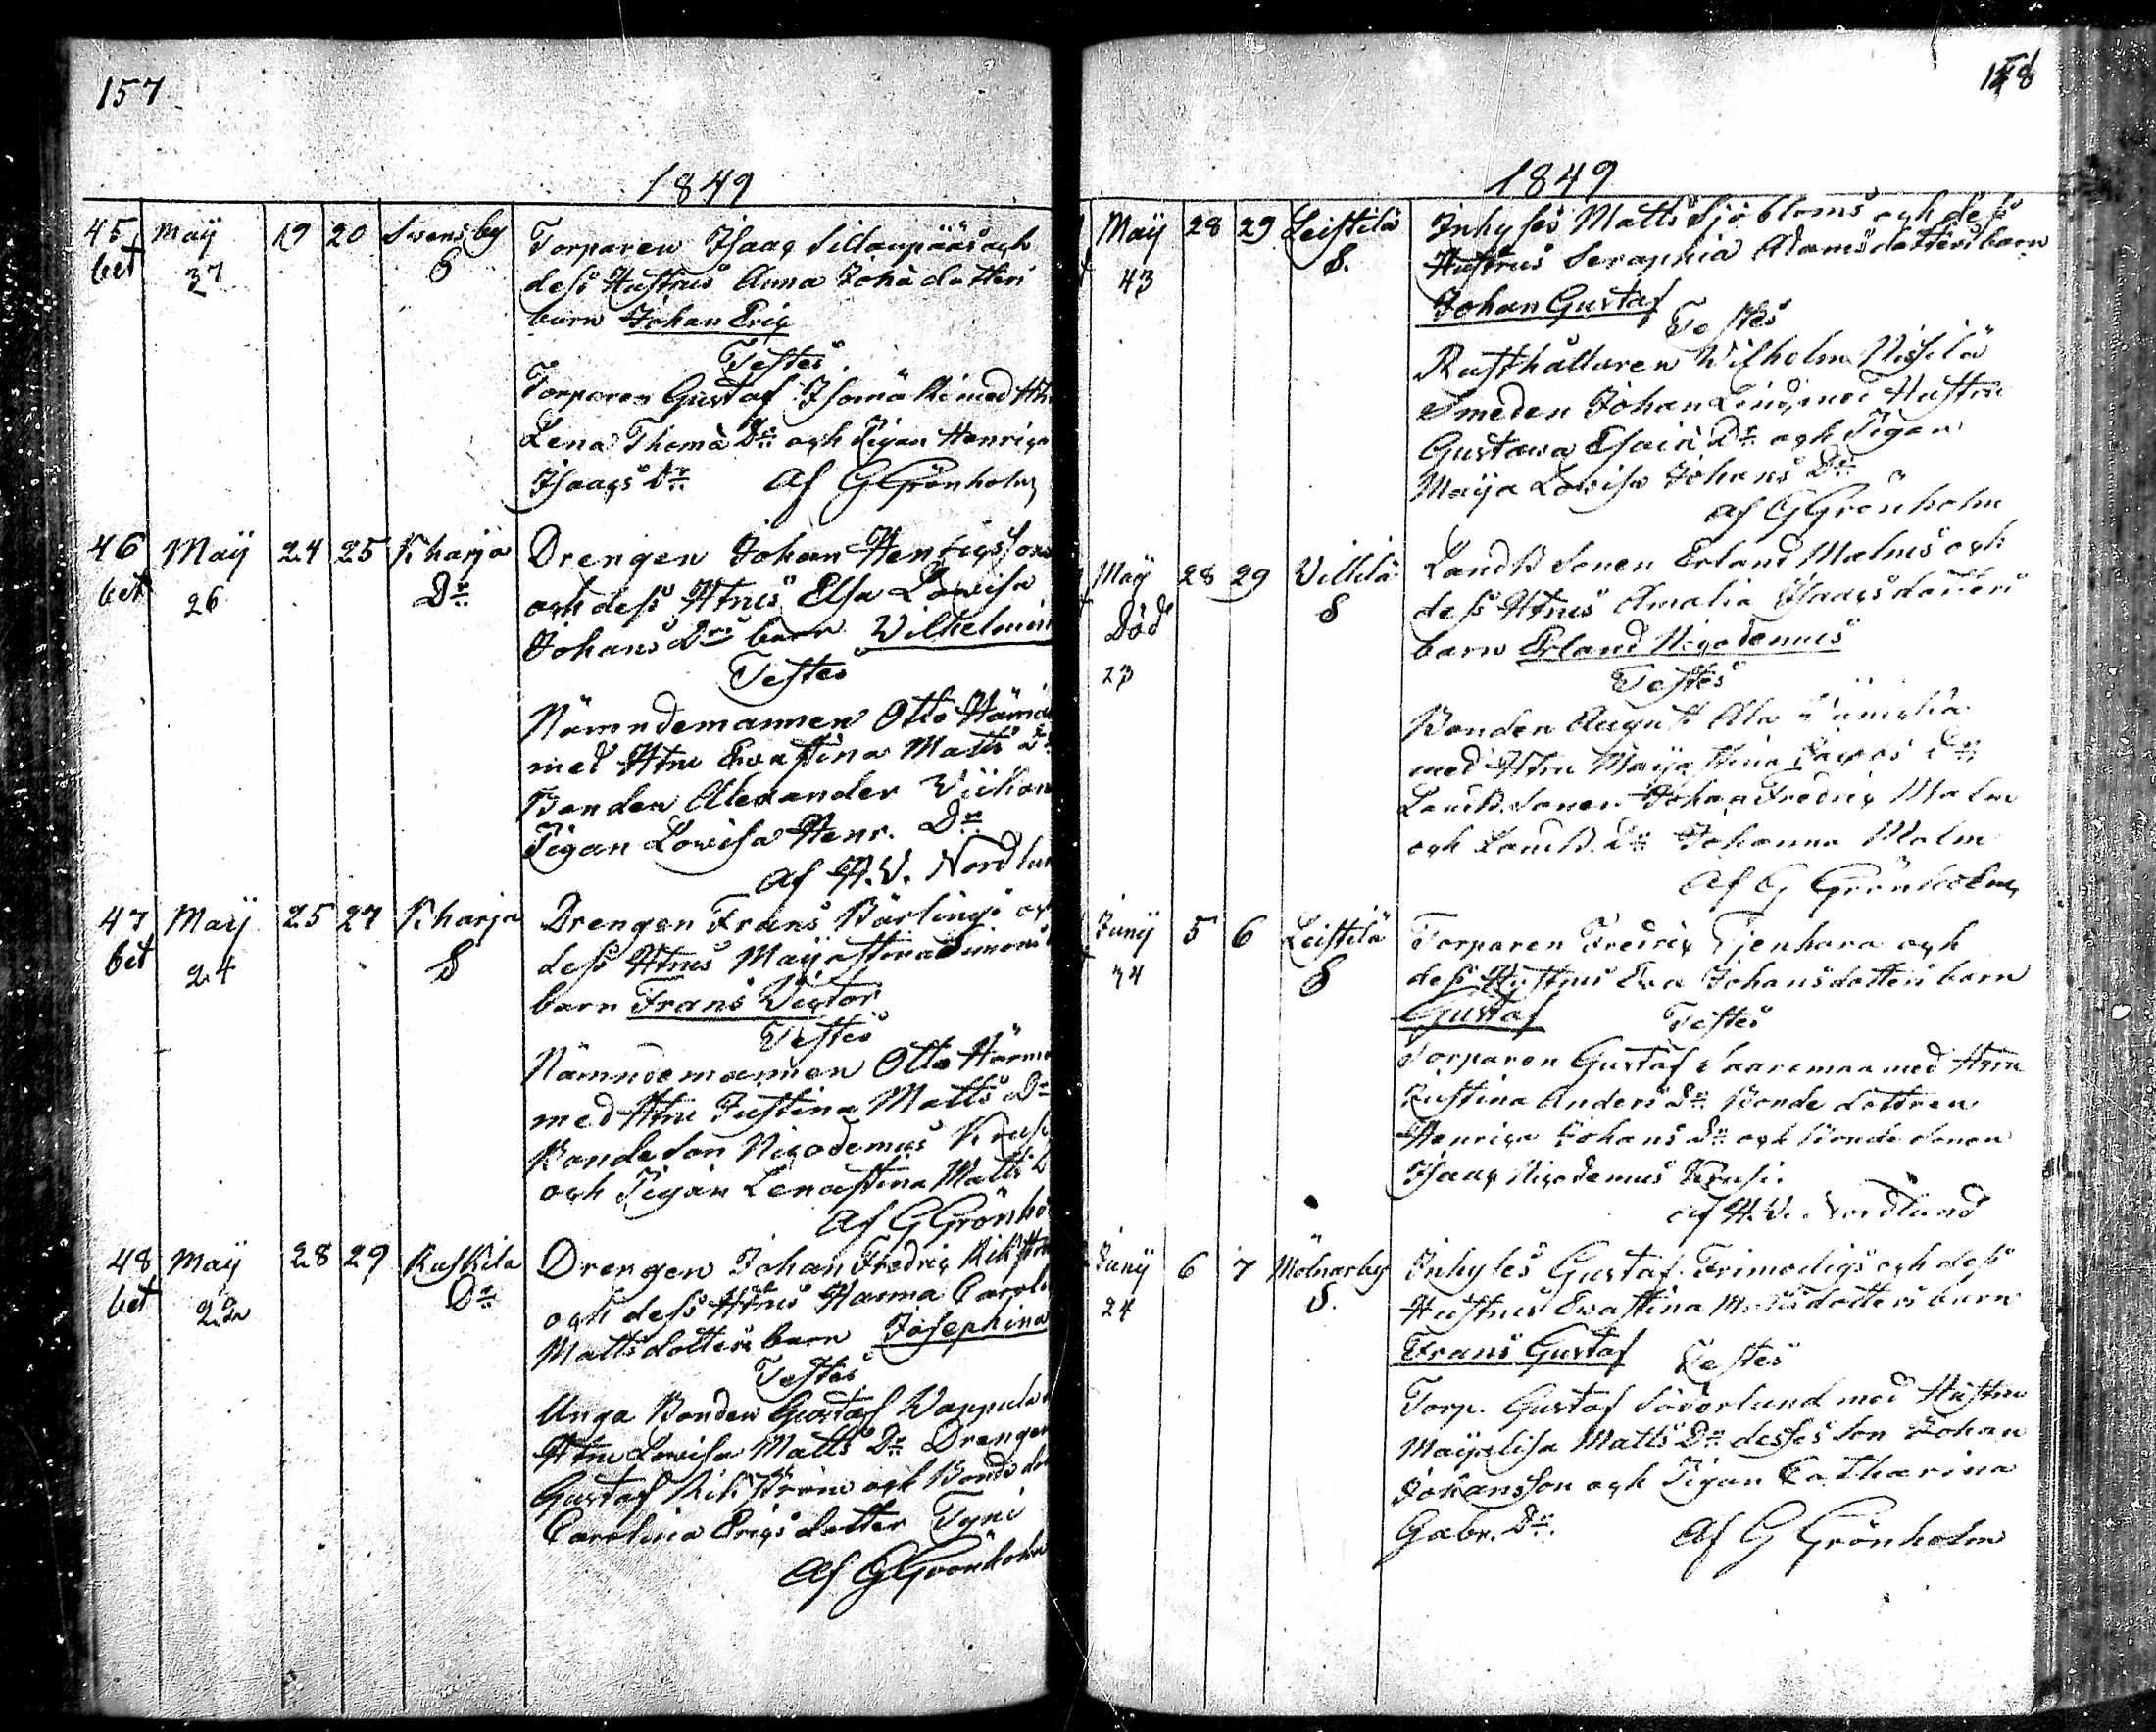 157
1849
45 May 19 20 Svensby Torparen Isaac Siltanpääs och
bet 37 S dess Hustrus Anna Johā dotters
barn Johan Eric
Testes
Torparen Gustaf Isomäki med Htr
Lena Thomā Dr och Pigan Henrica
Isaacs Dr Af G Grönholm
46 May 24 25 Kharja Drengen Johan Henricssons
bet 26 Dr och dess Htrus Elsa Lovisa
Johans Drs barn Wilhelmin
Testes
Nämndemannen Otto
med Htru Evastina Matts Dr
Bonden Alexander
Pigan Lovisa Henr. Dr
af H.V. Nordlun
47 May 25 27 Kharja Drengen Frans Bärlings och
bet 24 S dess Htrus Majastina Simons
barn Frans Victor
Testes
Nämndemannen Otto
med Htru Justina Matts Dr
Bondeson Nicodemus
och Pigan Lenastina Matts D
Af G Grönho
48 May 28 29 Kuskila Drengen Johan Fredric Rikström
bet 22 Dr och dess Htrus Hanna Caroli
Mattsdotters barn Josephina
Testes
Unga Bonden Gustaf Vappula
Htru Lovisa Matts Dr Drengen
Gustaf Rikström och Bonde dot
Carolina Ericsdotter Tyni
Af G Grönholm
158
1849
May 28 29 Leistilä Inhyses Matts Sjöbloms och dess
43 S. Hustrus Seraphia Adamsdotters barn
Johan Gustaf
Testes
Rusthållaren Wilhelm Nissilä
Smeden Johan Lind med Hustru
Gustava Esaiæ Dr och Pigan
Maija Lovisa Johans Dr
af G Grönholm
May 28 29 Villilä Landb Sonen Erland Malms och
Död S dess Htrus Amalia Isaacsdotters
23 barn Erland Nicodemus
Testes
Bonden August Ala
med Htru Majastina Dr
Landb. Sonen Johan Fredric Malm
och Landb. Dr Johanna Malm
Af G Grönholm
Juny 5 6 Leistilä Torparen Fredric Tjenhara och
34 S dess Hustrus Eva Johansdotters barn
Gustaf Testes
Torparen Gustaf Saaremaa med Htru
Justina Anders Dr Bonde dottren
Henrica Johans Dr och Bonde sonen
Isaac Nicodemus Krusi.
af H.V. Nordlund
Juny 6 7 Molnarby Inhyses Gustaf Frimodigs och dess
24 S. Hustrus Evastina Mattsdotters barn
Frans Gustaf Testes
Torp. Gustaf Söderlund med Hustru
Majalisa Matts Dr desses son Johan
Johansson och Pigan Catharina
Gabr. Dr. Af G Grönholm